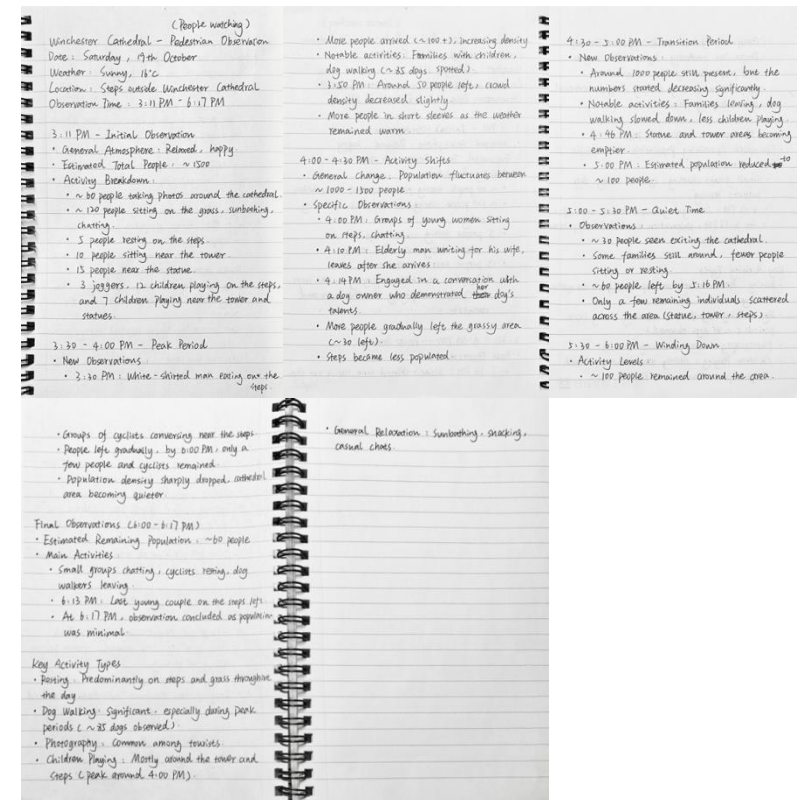 (People watching)
Winchester Cathedral - Pedestrian Observation
Date: Saturday, 19th October
Weather: Sunny, 18°C
Location: Steps outside Winchester Cathedral
Observation Time: 3:11 PM - 6:17 PM
3:11 PM - Initial Observation
• General Atmosphere: Relaxed, happy.
• Estimated Total People: ~1500
• Activity Breakdown:
• ~60 people taking photos around the cathedral.
• ~120 people sitting on the grass, sunbathing,
chatting.
• 5 people resting on the steps.
• 10 people sitting near the tower.
• 15 people near the statue.
• 3 joggers, 12 children playing on the steps,
and 7 children playing near the tower and
statues.
3:30 - 4:00 PM - Peak Period
• New Observations:
• 3:30 PM: White-shirted man eating on the
steps.
• More people arrived (~100+), increasing density
• Notable activities: Families with children,
dog walking (~85 dogs spotted).
• 3:50 PM: Around 50 people left, crowd
density decreased slightly.
• More people in short sleeves as the weather
remained warm
4:00 - 4:30 PM - Activity Shifts
• General Change: Population fluctuates between
~1000 - 1300 people
• Specific Observations:
• 4:00 PM: Groups of young women sitting
on steps, chatting.
• 4:10 PM: Elderly man waiting for his wife,
leaves after she arrives
• 4:14 PM: Engaged in a conversation with
a dog owner who demonstrated her dog's
talents.
• More people gradually left the grassy area
(~30 left).
• Steps became less populated
4:30 - 5:00 PM - Transition Period
• New Observations:
• Around 1000 people still present, but the
numbers started decreasing significantly.
• Notable activities: Families leaving, dog
walking slowed down, less children playing.
• 4:46 PM: Statue and tower areas becoming
emptier
• 5:00 PM: Estimated population reduced to
~100 people.
5:00 - 5:30 PM - Quiet Time
• Observations:
• ~30 people seen exiting the cathedral.
• Some families still around, fewer people
sitting or resting.
• ~60 people left by 5:16 PM.
• Only a few remaining individuals scattered
across the area (statue, tower, steps).
5:30 - 6:00 PM - Winding Down
• Activity Levels
• ~100 people remained around the area.
• Groups of cyclists conversing near the steps
• People left gradually, by 6:00 PM, only a
few people and cyclists remained.
• Population density sharply dropped, cathedral
area becoming quieter
Final Observations (6:00 - 6:17 PM)
• Estimated Remaining Population: ~60 people
• Main Activities:
• Small groups chatting, cyclists resting, dog
walkers leaving.
• 6:13 PM: Last young couple on the steps left.
• At 6:17 PM, observation concluded as population
was minimal.
Key Activity Types
• Resting: Predominantly on steps and grass throughout
the day
• Dog Walking: Significant, especially during peak
periods (~85 dogs observed).
• Photography: Common among tourists.
• Children Playing: Mostly around the tower and
steps (peak around 4:00 PM).
• General Relaxation: Sunbathing, snacking,
casual chats.